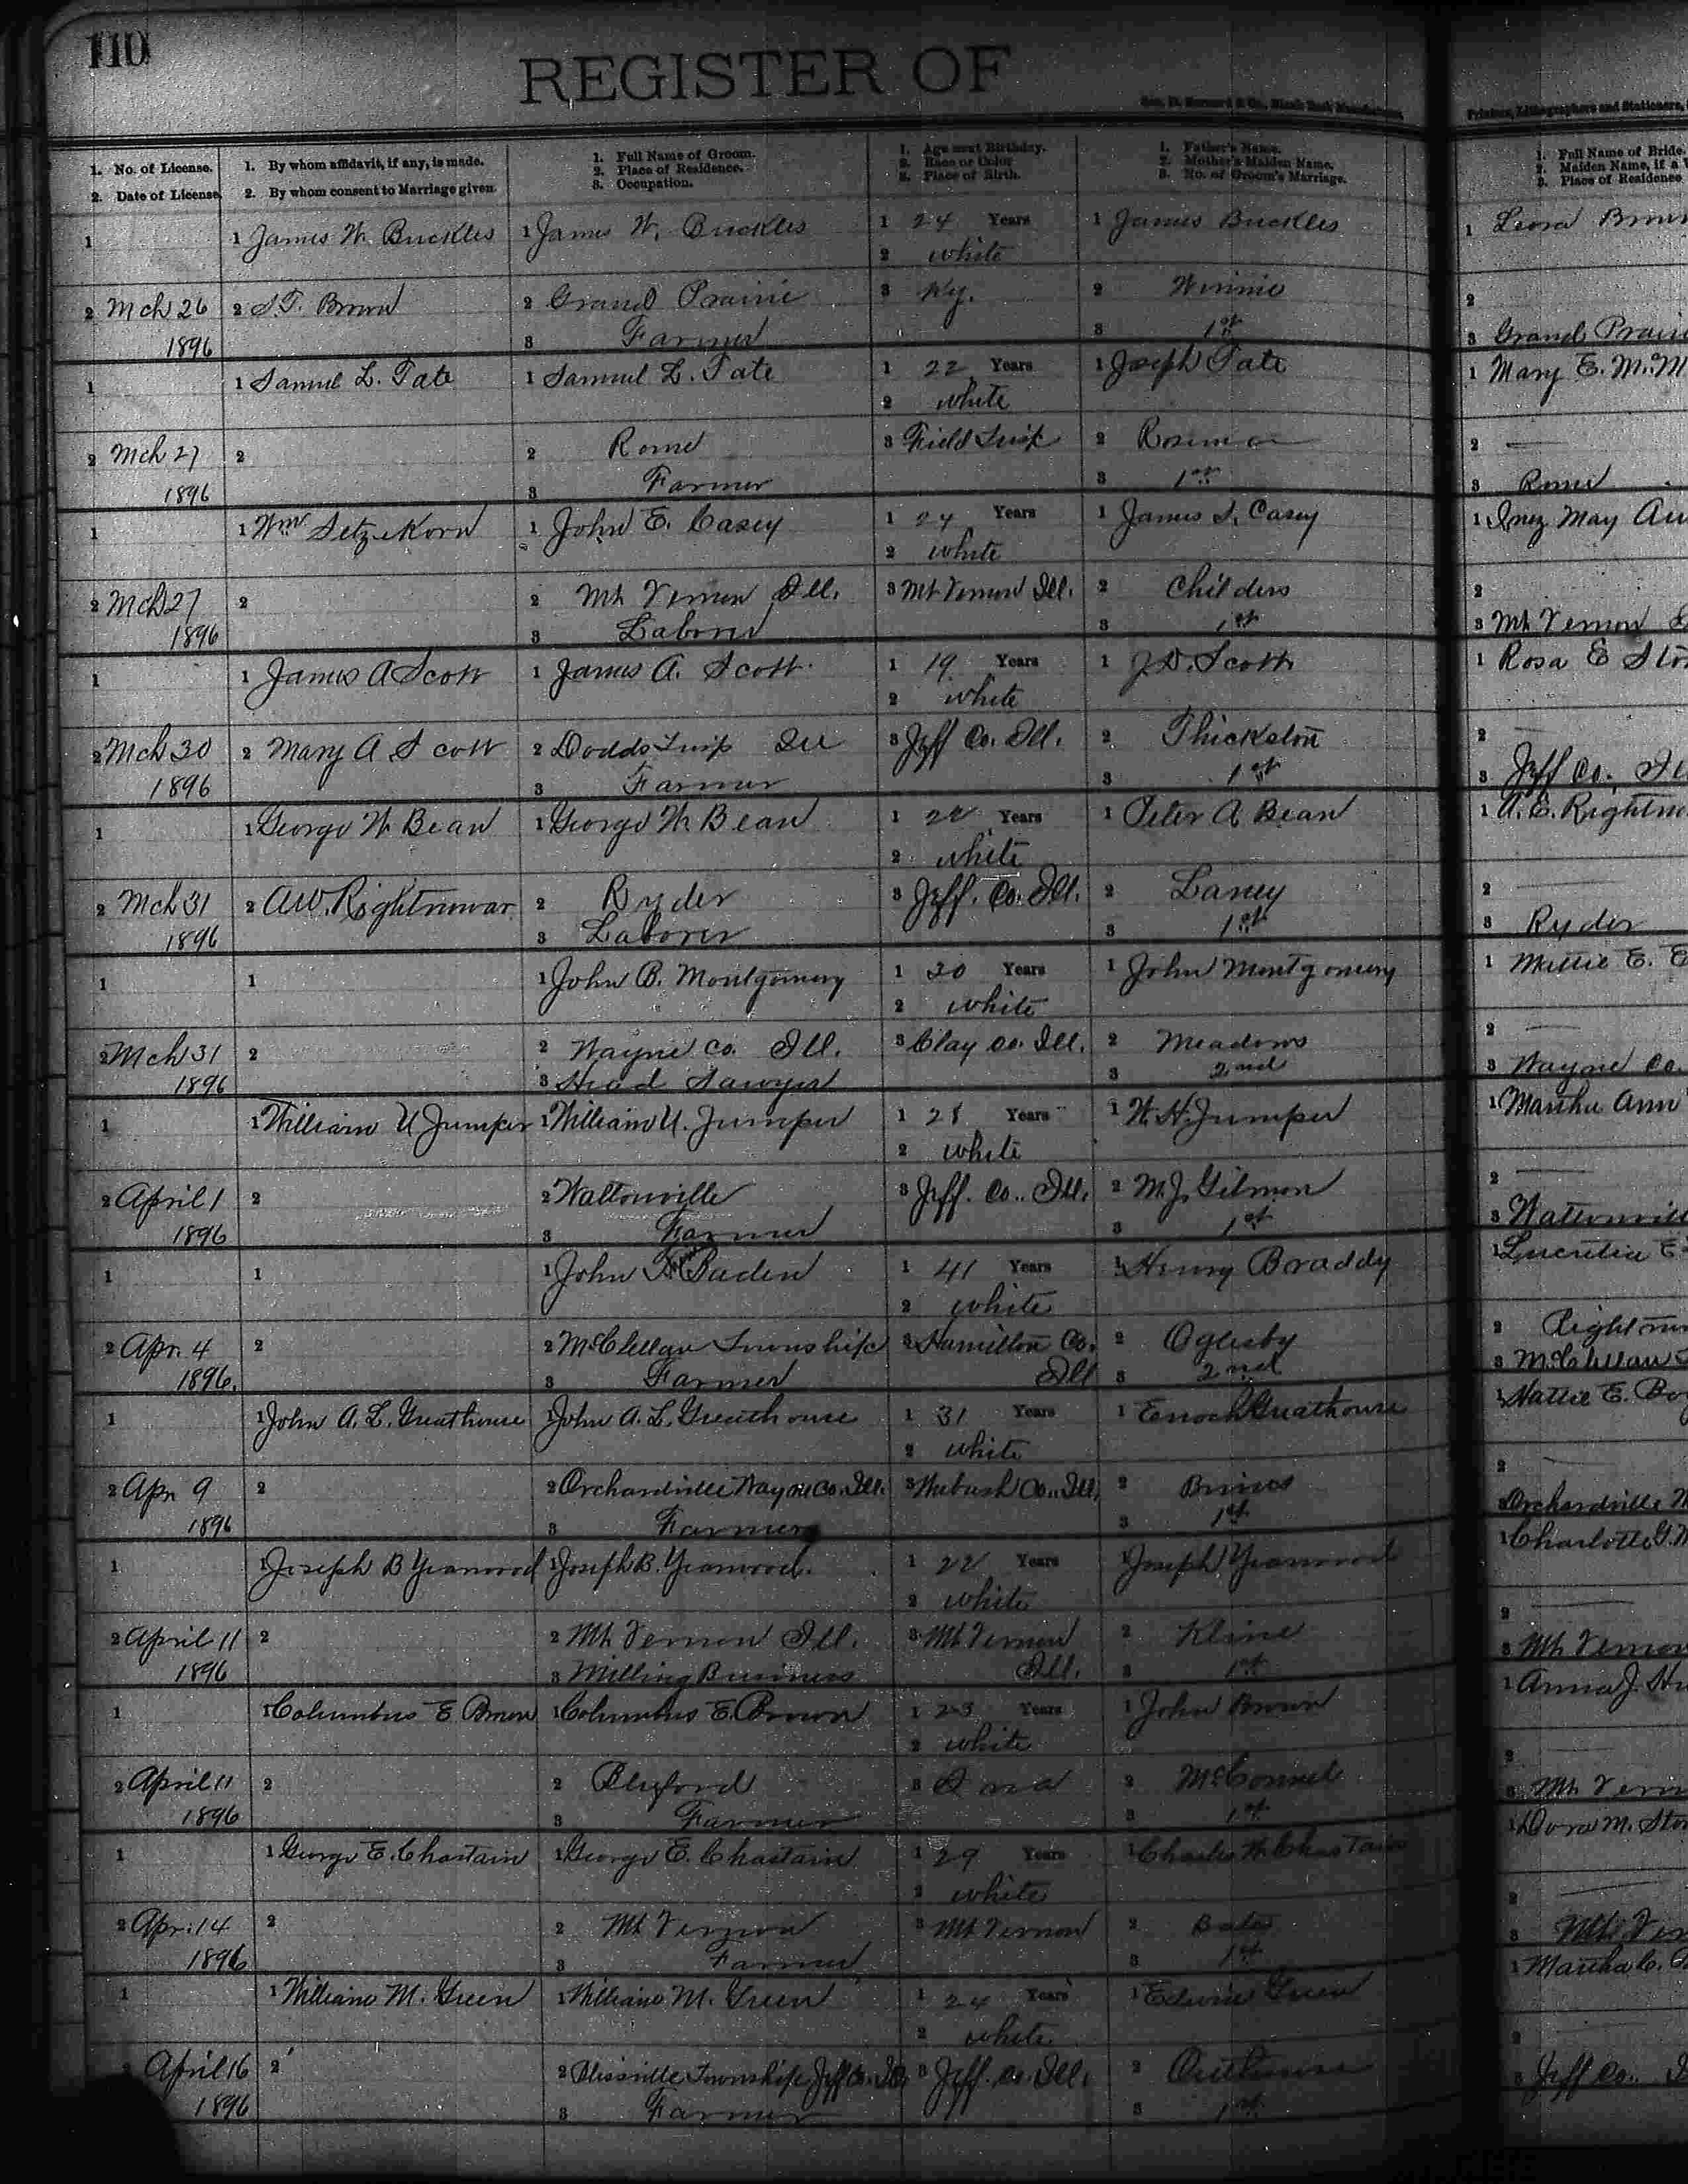 110
REGISTER OF
Geo. D. Barnard & Co., Blank Book Manufacturers,
Printers, Lithographers and Stationers,
1. No. of License.
2. Date of License.
1. By whom affidavit, if any, is made.
2. By whom consent to Marriage given.
1. Full Name of Groom.
2. Place of Residence.
3. Occupation.
1. Age next Birthday.
2. Race or Color
3. Place of Birth.
1. Father's Name.
2. Mother's Maiden Name.
3. No. of Groom's Marriage.
1. Full Name of Bride.
2. Maiden Name, if a
3. Place of Residence
1 1 James W. Buckles 1 James W. Buckles 1 24 Years 1 James Buckles 1 Leora
2 white
2 Mch 26 2 S.T. Brown 2 Grand Prairie 3 Ky. 2 2
1896 3 Farmer 3 1st 3 Grand Prairi
1 1 Samuel L. Tate 1 Samuel L. Tate 1 22 Years 1 Joseph Tate 1 Mary E. McM
2 white
2 Mch 27 2 2 Rome 3 Field Twp 2 2
1896 3 Farmer 3 1st 3 Rome
1 1 Wm Setzekorn 1 John E. Casey 1 24 Years 1 James S. Casey 1 Inez May
2 white
2 Mch 27 2 2 Mt Vernon Ill. 3 Mt Vernon Ill. 2 Childers 2
1896 3 Laborer 3 1st 3 Mt Vernon
1 1 James A Scott 1 James A. Scott 1 19 Years 1 J.D. Scott 1 Rosa E
2 white
2 Mch 30 2 Mary A Scott 2 Dodds Twp Ill 3 Jeff Co. Ill. 2 Thickston 2
1896 3 Farmer 3 1st 3 Jeff Co.
1 1 George W Bean 1 George W Bean 1 22 Years 1 Peter A Bean 1 A. E. Rightno
2 white
2 Mch 31 2 A.W. Rightnowar 2 Ryder 3 Jeff. Co. Ill. 2 Laney 2
1896 3 Laborer 3 1st 3 Ryder
1 1 1 John B. Montgomery 1 30 Years 1 John Montgomery 1 E.
2 white
2 Mch 31 2 2 Wayne Co. Ill. 3 Clay Co. Ill. 2 Meadows 2
1896 3 Head Sawyer 3 2nd 3 Wayne Co.
1 1 William U Jumper 1 William U. Jumper 1 28 Years 1 W. H. Jumper 1 Martha Ann
2 white
2 April 1 2 2 Waltonville 3 Jeff. Co. Ill. 2 M. J. Gilmon 2
1896 3 Farmer 3 1st 3 Waltonvill
1 1 1 John Braden 1 41 Years 1 Henry Braddy 1 Lucretia E
2 white
2 Apr. 4 2 2 McClellan Township 3 Hamilton Co. 2 Oglesby 2 Rightnow
1896. 3 Farmer Ill 3 2nd 3 McClellan
1 1 John A. L. Greathouse 1 John A. L. Greathouse 1 31 Years 1 Enoch Greathouse 1 Hattie E.
2 white
2 Apr 9 2 2 Orchardville Wayne Co. Ill. 3 Wabash Co., Ill. 2 2
1896 3 Farmer 3 1st 3 Orchardville
1 1 Joseph B Yearwood 1 Joseph B. Yearwood. 1 22 Years 1 Joseph Yearwood 1 Charlotte G.
2 white
2 April 11 2 2 Mt Vernon Ill. 3 Mt Vernon 2 Kline 2
1896 3 Milling Business Ill. 3 1st 3 Mt Vernon
1 1 Columbus E Brown 1 Columbus E. Brown 1 23 Years 1 John Brown 1 Anna J.
2 white
2 April 11 2 2 Bluford 3 Ind 2 McConnel 2
1896 3 Farmer 3 1st 3 Mt Vern
1 1 George E. Chastain 1 George E. Chastain 1 29 Years 1 Charles W. Chastain 1 Dora M.
2 white
2 Apr. 14 2 2 Mt Vernon 3 Mt Vernon 2 Bates 2
1896 3 Farmer 3 1st 3 Mt Ver
1 1 William M. Green 1 William M. Green 1 24 Years 1 Edwin Green 1 Martha C.
2 white
2 April 16 2 2 Blissville Township Jeff Co. Ill 3 Jeff. Co. Ill. 2 2
1896 3 Farmer 3 1st 3 Jeff Co.